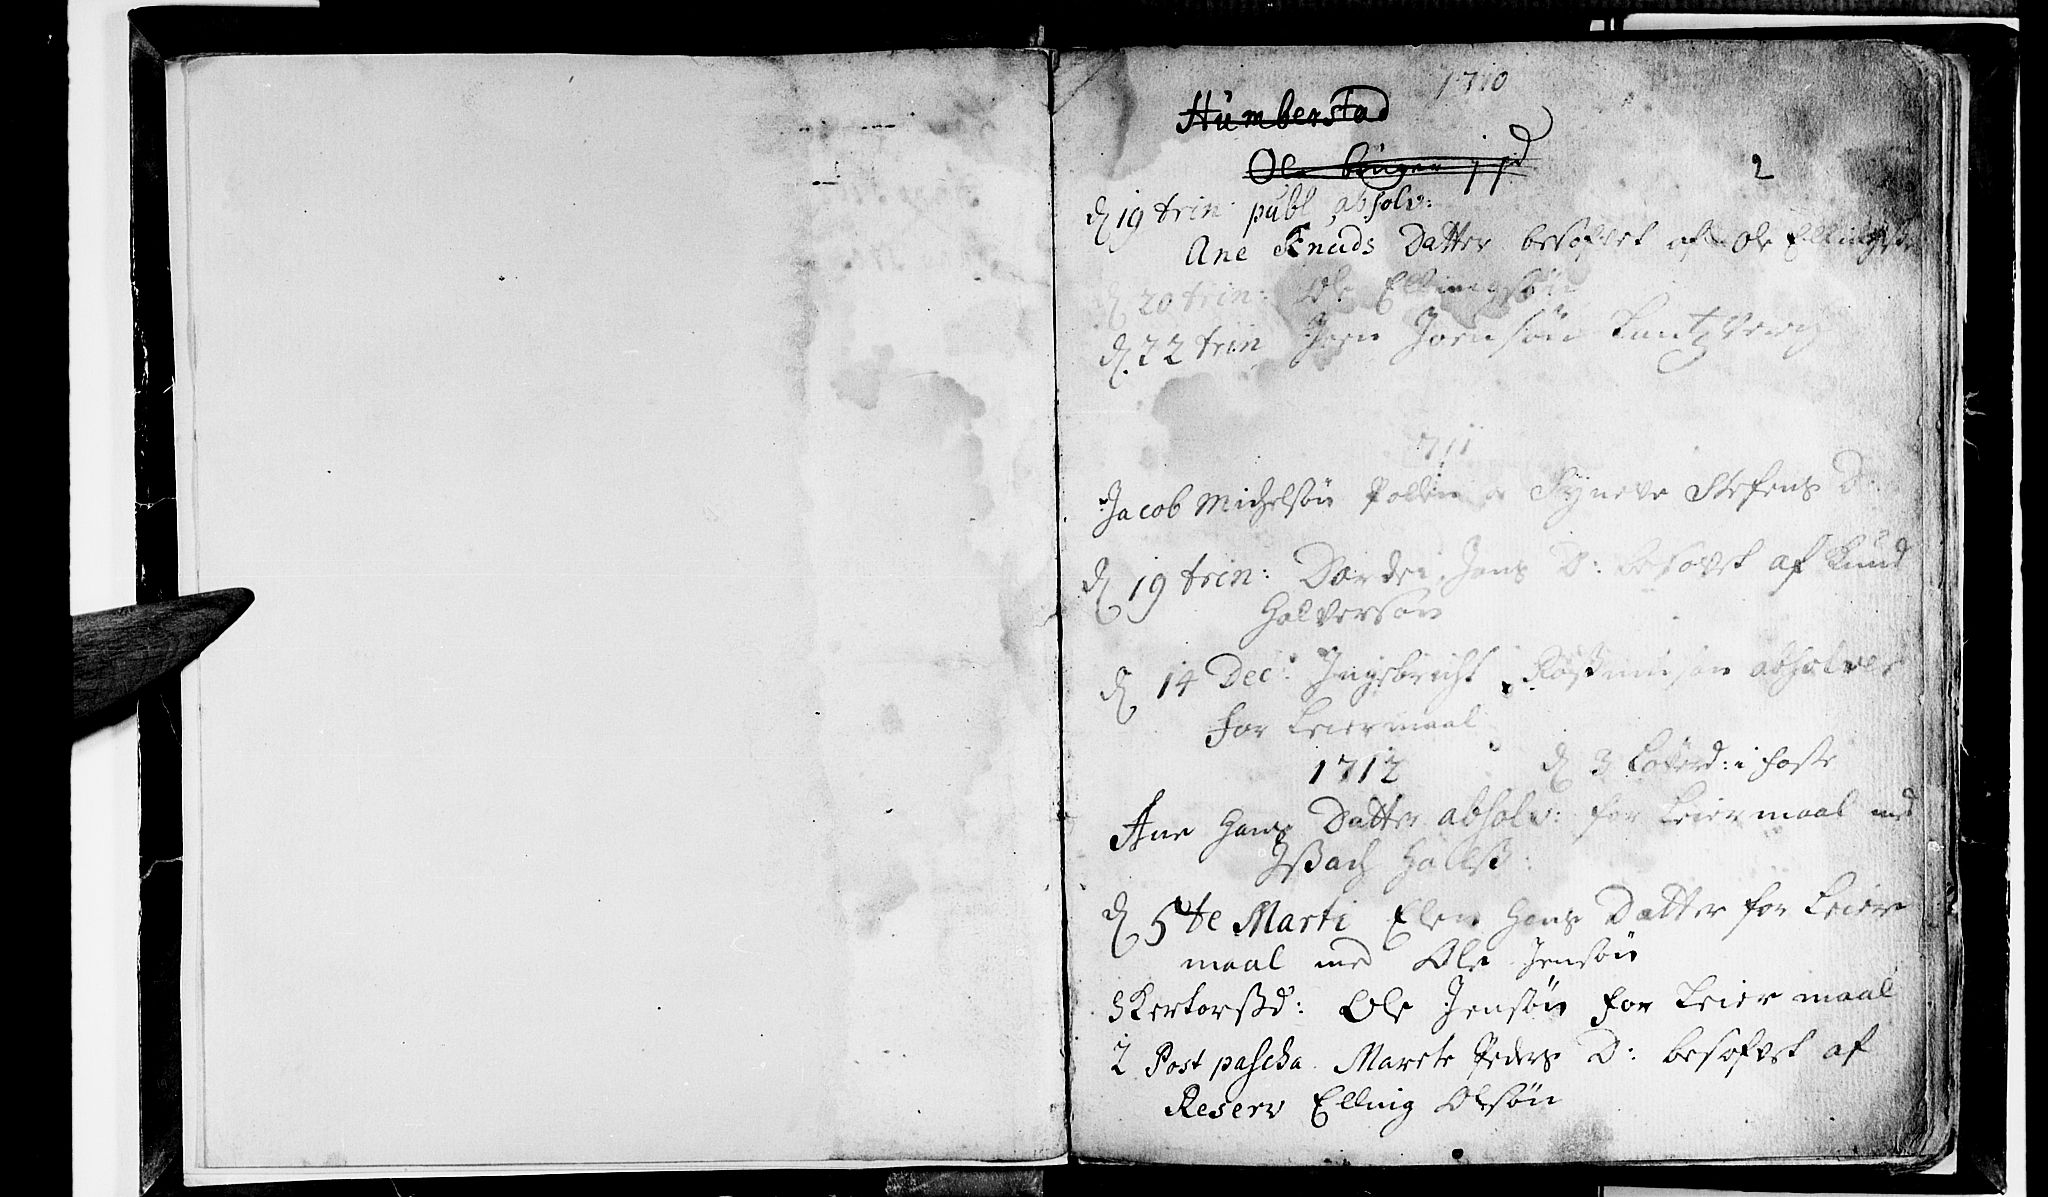 1710
Humberstad
Ole
2
d 19 trin: publ absolv:
Ane Knuds Datter besofvet af Ole Ellingsøn
d 20 trin: Ole Ellingsøn
d. 22 trin Joen Joensøn
1711
Jacob Michelsøn Pollen o Syneve Stefens D:
d 19 trin: Dordei Jens D: besovet af Knud
Halversøn
d 14 Dec: Ingebricht absolver
for Leiermaal
1712 d 3 i faste
Ane Hans Datter absolv: for Leiermaal med
d 5te Marti Elen Hans Datter for Leier
maal med Ole Jensøn
Ole Jensøn for Leiermaal
2 Post pascha. Marete Peders D: besofvet af
Reserv Elling Olsøn